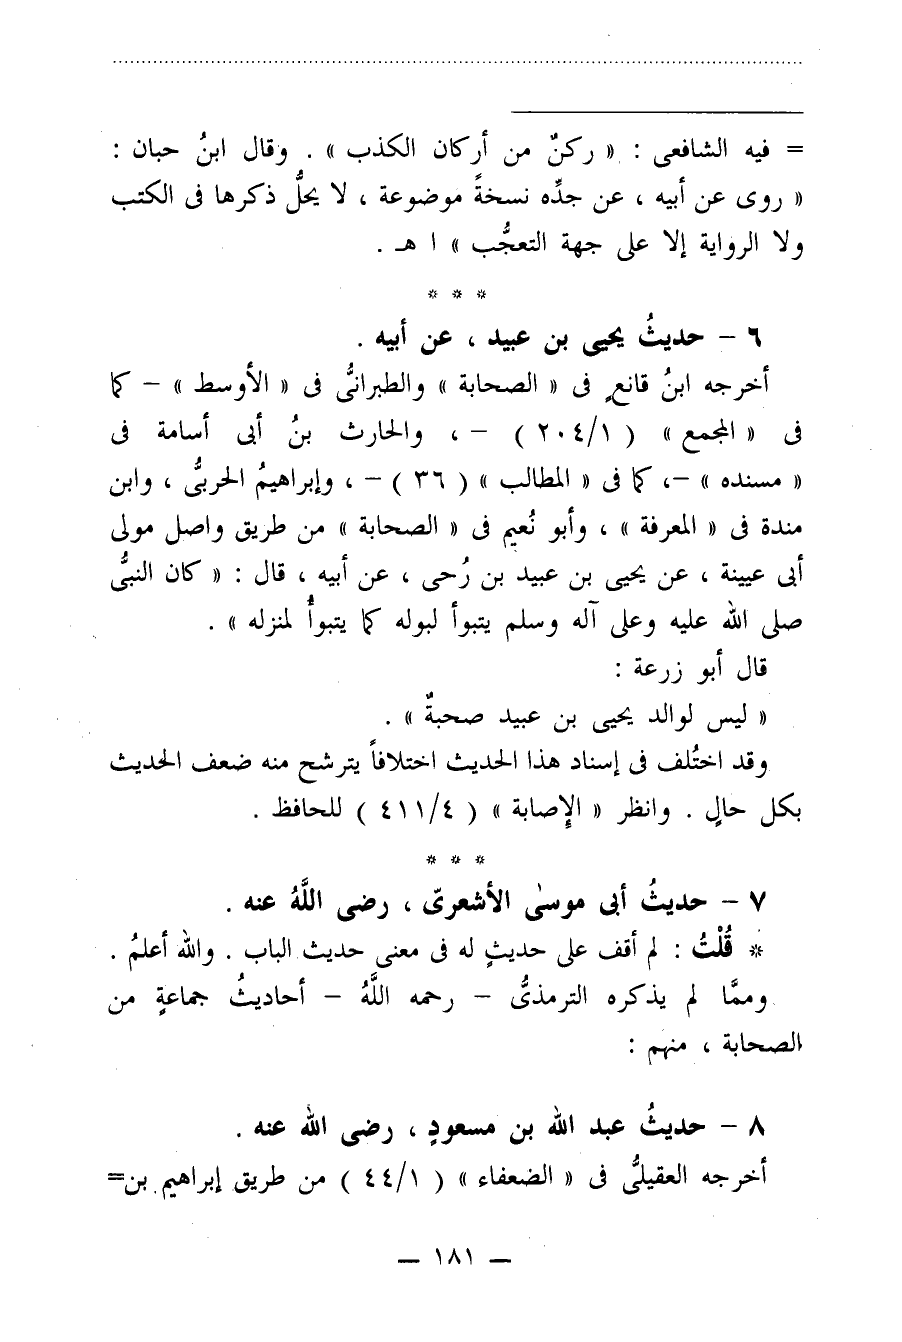 = فيه الشافعى : « ركنٌ من أركان الكذب » . وقال ابنُ حبان :
« روى عن أبيه ، عن جدِّه نسخةً موضوعة ، لا يحلُّ ذكرها فى الكتب
ولا الرواية إلا على جهة التعجُّب » ا هـ .
* * *
٦ – حديثُ يحيى بن عبيد ، عن أبيه .
أخرجه ابنُ قانعٍ فى « الصحابة » والطبرانىُّ فى « الأوسط » – كما
فى « المجمع » ( ٢٠٤/١ ) – ، والحارث بنُ أبى أسامة فى
« مسنده » –، كما فى « المطالب » ( ٣٦ ) – ، وإبراهيمُ الحربىُّ ، وابن
مندة فى « المعرفة » ، وأبو نُعيم فى « الصحابة » من طريق واصل مولى
أبى عيينة ، عن يحيى بن عبيد بن رُحى ، عن أبيه ، قال : « كان النبىُّ
صلى الله عليه وعلى آله وسلم يتبوأ لبوله كما يتبوأُ لمنزله » .
قال أبو زرعة :
« ليس لوالد يحيى بن عبيد صحبةٌ » .
وقد اختُلف فى إسناد هذا الحديث اختلافاً يترشح منه ضعف الحديث
بكل حالٍ . وانظر « الإصابة » ( ٤١١/٤ ) للحافظ .
* * *
٧ – حديثُ أبى موسىٰ الأشعرىّ ، رضى اللَّهُ عنه .
* قُلْتُ : لم أقف على حديثٍ له فى معنى حديث الباب . والله أعلمُ .
وممَّا لم يذكره الترمذىُّ – رحمه اللَّهُ – أحاديثُ جماعةٍ من
الصحابة ، منهم :
٨ – حديثُ عبد الله بن مسعودٍ ، رضى الله عنه .
أخرجه العقيلىُّ فى « الضعفاء » ( ٤٤/١ ) من طريق إبراهيم بن=
— ١٨١ —